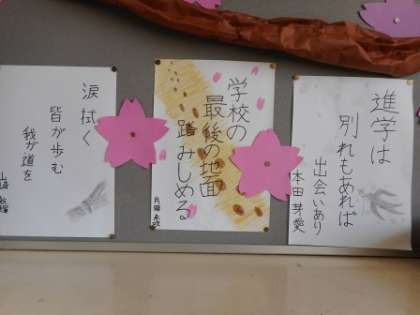 進学は
別れもあれば
出会いあり
本田 芽愛
学校の
最後の地面
踏みしめる。
涙拭く
皆が歩む
我が道を